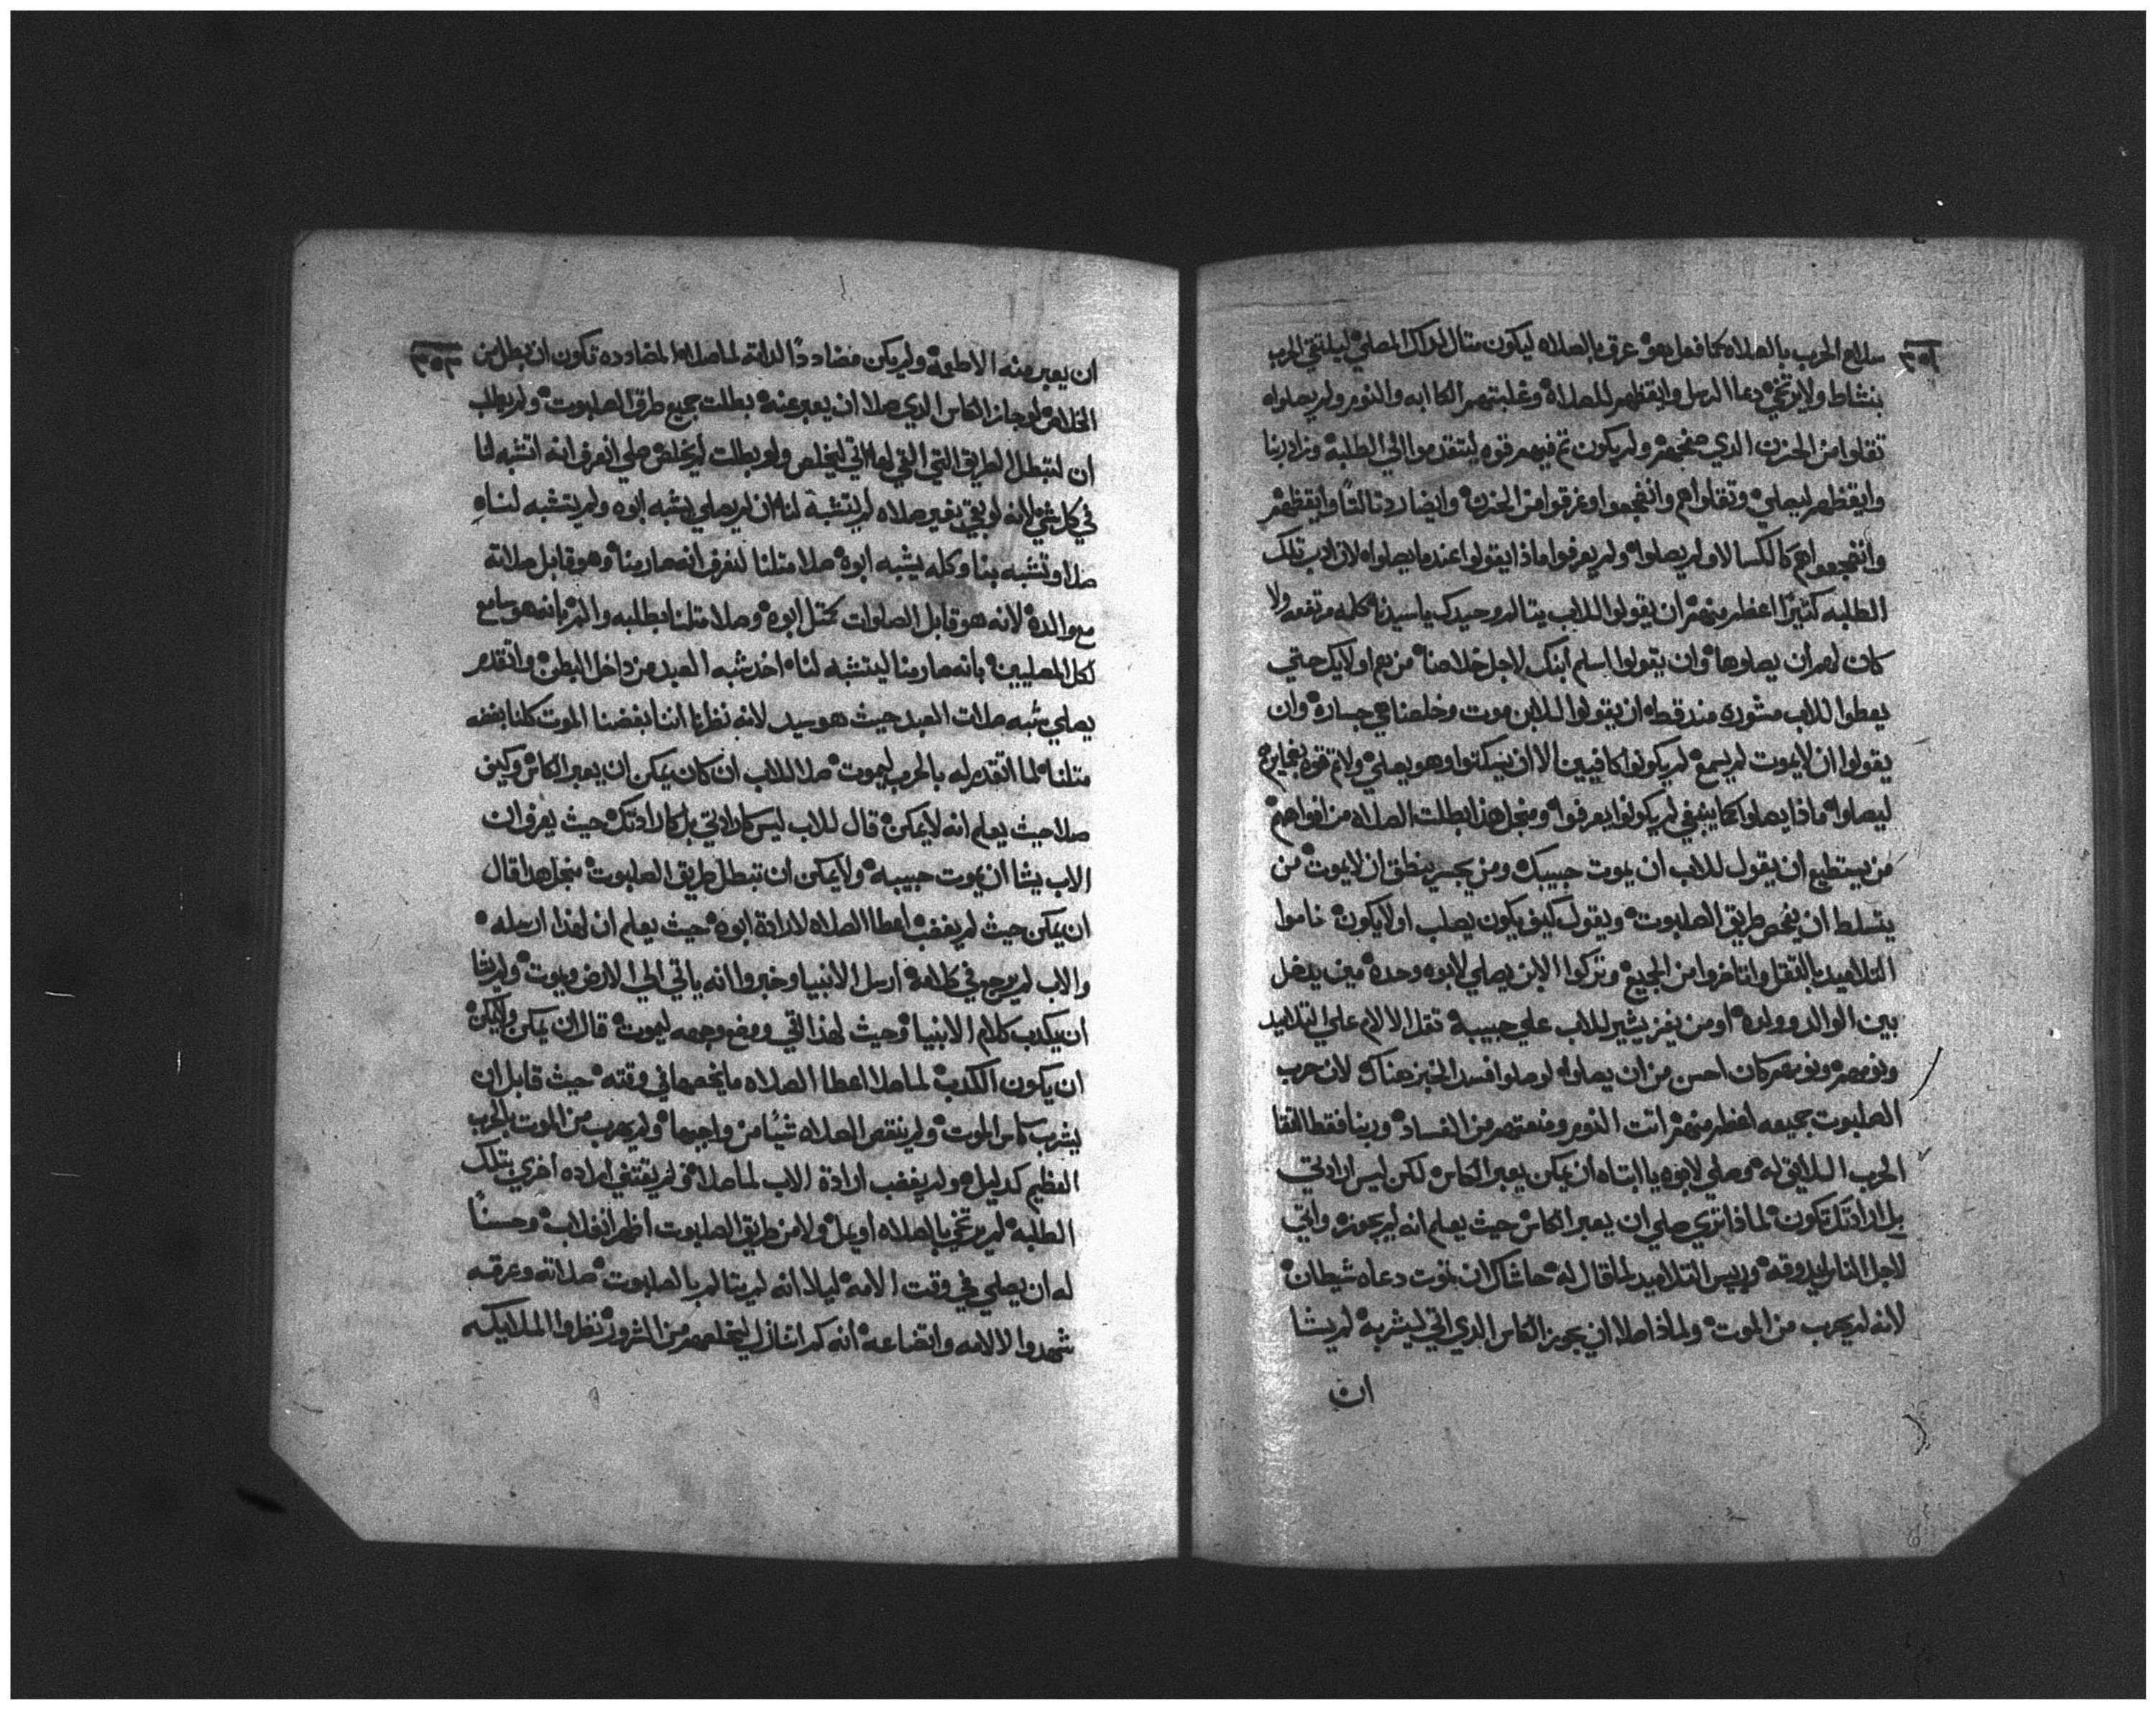 ٣٥٢
سلاح الحرب بالصلاه كما فعل هو عرق بالصلاه ليكون مثال لذاك المصلي ليلتقي الحرب
بنشاط ولا يرتخي دعا الرسل وايقظهم للصلاه وغلبتهم الكابه والنوم ولم يصلوا
تقلوا من الحزن الدي ضجعهم ولم يكون تم فيهم قوه ليتقدموا الي الطلبه وزاد ربنا
وايقظهم ليصلي وتقلوا هم وانضجعوا وغرقوا من الحزن وايضا رد تالتا وايقظهم
وانضجعوا هم كالكسالا ولم يصلوا ولم يعرفوا مادا يقولوا عندما يصلوا لان ادب تلك
الطلبه كتيرا اعظم منهم ان يقولوا للاب يتالم وحيدك يا سيدنا كلمه مرتفعه ولا
كان لهم ان يصلوها وان يقولوا اسلم ابنك لاجل خلاصنا من هم اولايك حتي
يعطوا للاب مشوره مند قط ان يقولوا للابن موت وخلصنا هي جساره وان
يقولوا ان لا يموت لم يسمع لم يكونوا كافيين الا ان يسكتوا وهو يصلي ولا تم قوه بغايرهم
ليصلوا مادا يصلوا كما ينبغي لم يكونوا يعرفوا ومنجل هدا بطلت الصلاه من افواههم
من يستطيع ان يقول للاب ان يموت حبيبك ومن يجسر ينطق ان لا يموت من
يتسلط ان يفحص طريق الصلبوت ويقول كيف يكون يصلب او لا يكون خاموا
التلاميد بالتقل واتاخروا من الجميع وتركوا الابن يصلي لابوه وحده مين يدخل
بين الوالد وولده او من يغمز يشير للاب علي حبيبه تقل الالام علي التلاميد
ونومهم ونومهم كان احسن من ان يصلوا لو صلوا فسد الخبر هناك لان حرب
الصلبوت جميعه اعظم منهم اتت النوم ومنعتهم من الفساد وربنا فقط التقا
الحرب اللايق له وصلي لابوه يا ابتاه ان يمكن يعبر الكاس لكن ليس ارادتي
بل ارادتك تكون لمادا تري صلي ان يعبر الكاس حيث يعلم انه لم يجوزه واتي
لاجل الناس ليدوقه وريس التلاميد لما قال له حاشاك ان تموت دعاه شيطان
لانه لم يهرب من الموت ولمادا صلا ان يجوز الكاس الدي اتي ليشربه لم يشا
ان
٣٥٣
ان يعبر منه الا طيعه ولم يكن مضاددا لداته لما صلا المضادده تكون ان تبطل من
الخلاص لو جاز الكاس الدي صلا ان يعبر عنه بطلت جميع طرق الصلبوت ولم يطلب
ان لتبطل الطريق التي لها اتي ليخلص ولو بطلت لم يخلص صلي لنعرف انه اتشبه لنا
في كل شي لانه لو بقي بغير صلاه لم يتشبه لنا ان لم يصلي يشبه ابوه ولم يتشبه لنا
صلا وتشبه بنا وكله يشبه ابوه صلا متلنا لنعرف انه صار منا وهو قابل صلاته
مع والده لانه هو قابل الصلوات كمتل ابوه وصلا متلنا بطلبه والم بانه هو سامع
لكل المصليين بانه صار منا ليتشبه لنا اخد شبه العبد من داخل البطن واتقدم
يصلي شبه صلات العبد حيث هو سيد لانه نظرنا اننا بغضنا الموت كلنا بغضه
متلنا لما اتقدم له بالحرب ليموت صلا للاب ان كان يمكن ان يعبر الكاس وكيف
صلا حيث يعلم انه لا يمكن قال للاب ليس كارادتي بل كارادتك حيث يعرف ان
الاب يشا ان يموت حبيبه ولا يمكن ان تبطل طريق الصلبوت منجل هدا قال
ان يمكن حيث لم يغضب اعطا الصلاه لارادة ابوه حيث يعلم ان لهدا ارسله
والاب لم يرجع في كلامه ارسل الانبيا وخبروا انه ياتي الي الارض ويموت ولم يشا
ان يكدب كلام الانبيا وحيث لهدا اتي ووضع وجهه ليموت قال ان يمكن ولا يمكن
ان يكون الكدب لما صلا اعطا الصلاه ما يخصها في وقته حيث قابل ان
يشرب كاس الموت ولم ينقص الصلاه شيا من واجبها ولم يهرب من الموت بالحرب
العظيم كدليل ولم يغضب ارادة الاب لما صلا ولم يقتني اراده اخري بتلك
الطلبه لم يرتخي بالصلاه او يمل ولا من طريق الصلبوت اظهر انفلات وحسنا
له ان يصلي في وقت الامه ليلا انه لم يتالم بالصلبوت صلاته وعرقه
شهدوا لالامه واتضاعه انه كم اتنازل ليخلصهم من الشرور نظروا الملايكه